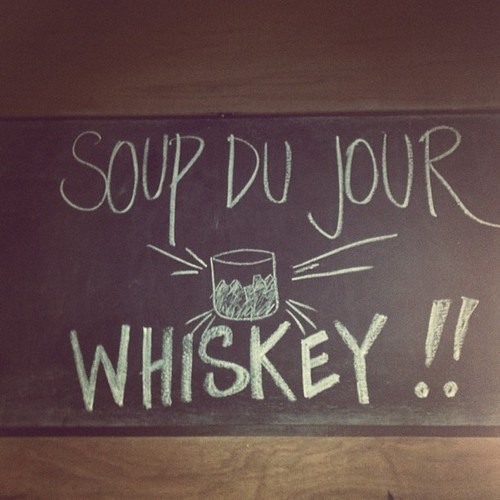 SOUP DU JOUR
WHISKEY !!